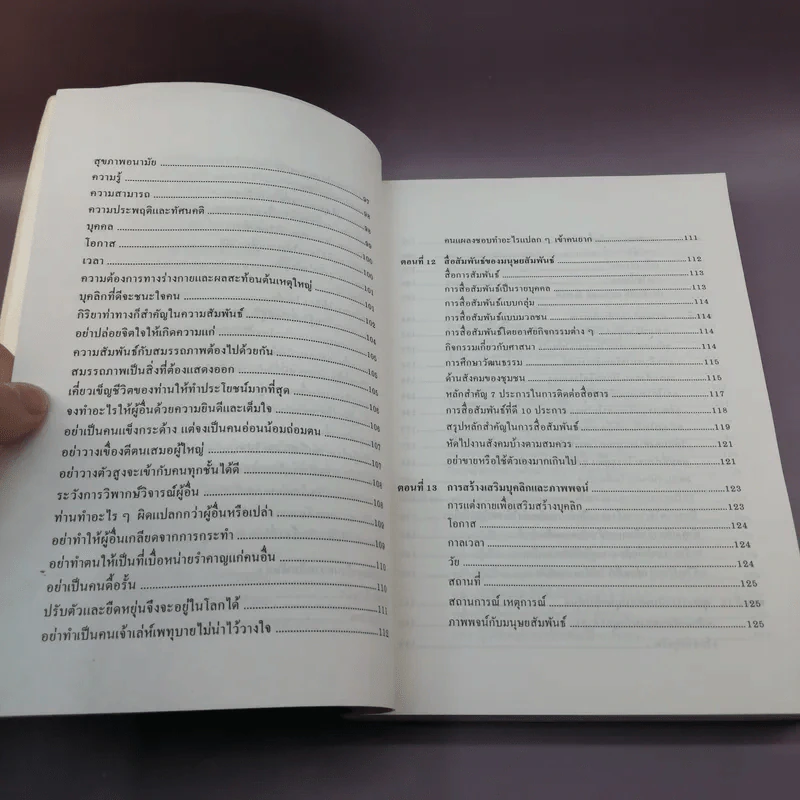 สุขภาพอนามัย
ความรู้ 97
ความสามารถ 98
ความประพฤติและทัศนคติ 98
บุคคล 99
โอกาส 100
เวลา 100
ความต้องการทางร่างกายและผลสะท้อนต้นเหตุใหญ่ 101
บุคลิกที่ดีจะชนะใจคน 101
กิริยาท่าทางก็สำคัญในความสัมพันธ์ 102
อย่าปล่อยจิตใจให้เกิดความแก่ 104
ความสัมพันธ์กับสมรรถภาพต้องไปด้วยกัน 105
สมรรถภาพเป็นสิ่งที่ต้องแสดงออก 105
เคี่ยวเข็ญชีวิตของท่านให้ทำประโยชน์มากที่สุด 106
จงทำอะไรให้ผู้อื่นด้วยความยินดีและเต็มใจ 106
อย่าเป็นคนแข็งกระด้าง แต่จงเป็นคนอ่อนน้อมถ่อมตน 107
อย่าวางเขื่องตีตนเสมอผู้ใหญ่ 107
อย่าวางตัวสูงจะเข้ากับคนทุกชั้นได้ดี 108
ระวังการวิพากษ์วิจารณ์ผู้อื่น 108
ท่านทำอะไร ๆ ผิดแปลกกว่าผู้อื่นหรือเปล่า 109
อย่าทำให้ผู้อื่นเกลียดจากการกระทำ 109
อย่าทำตนให้เป็นที่เบื่อหน่ายรำคาญแก่คนอื่น 110
อย่าเป็นคนดื้อรั้น 110
ปรับตัวและยืดหยุ่นจึงจะอยู่ในโลกได้ 111
อย่าทำเป็นคนเจ้าเล่ห์เพทุบายไม่น่าไว้วางใจ 112
คนแผลงชอบทำอะไรแปลก ๆ เข้าคนยาก 111
ตอนที่ 12 สื่อสัมพันธ์ของมนุษยสัมพันธ์ 112
สื่อการสัมพันธ์ 113
การสื่อสัมพันธ์เป็นรายบุคคล 113
การสื่อสัมพันธ์แบบกลุ่ม 114
การสื่อสัมพันธ์แบบมวลชน 114
การสื่อสัมพันธ์โดยอาศัยกิจกรรมต่าง ๆ 114
กิจกรรมเกี่ยวกับศาสนา 114
การศึกษาวัฒนธรรม 115
ด้านสังคมของชุมชน 115
หลักสำคัญ 7 ประการในการติดต่อสื่อสาร 116
การสื่อสัมพันธ์ที่ดี 10 ประการ 118
สรุปหลักสำคัญในการสื่อสัมพันธ์ 119
หัดไปงานสังคมบ้างตามสมควร 121
อย่าขายหรือใช้ตัวเองมากเกินไป 121
ตอนที่ 13 การสร้างเสริมบุคลิกและภาพพจน์ 123
การแต่งกายเพื่อเสริมสร้างบุคลิก 123
โอกาส 124
กาลเวลา 124
วัย 124
สถานที่ 125
สถานการณ์ เหตุการณ์ 125
ภาพพจน์กับมนุษยสัมพันธ์ 125